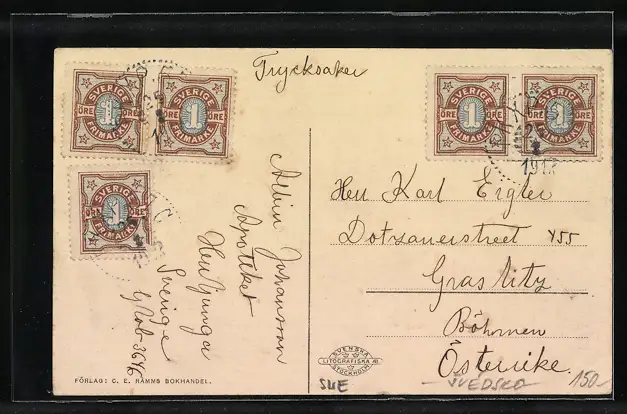 Trycksaker
SVERIGE
1
ÖRE ÖRE
FRIMÄRKE
SVERIGE
1
ÖRE ÖRE
FRIMÄRKE
SVERIGE
1
ÖRE ÖRE
FRIMÄRKE
SVERIGE
1
ÖRE ÖRE
FRIMÄRKE
SVERIGE
1
ÖRE ÖRE
FRIMÄRKE
Albin Johansson
Apoteket
Herrljunga
Sverige
Herr Karl Eigler
Dotzauerstreet 455
Graslitz
Böhmen
Österrike.
SVENSKA
LITOGRAFISKA AB
STOCKHOLM
FÖRLAG: C. E. RAMMS BOKHANDEL.
SUE
SVEDSKO
150.-